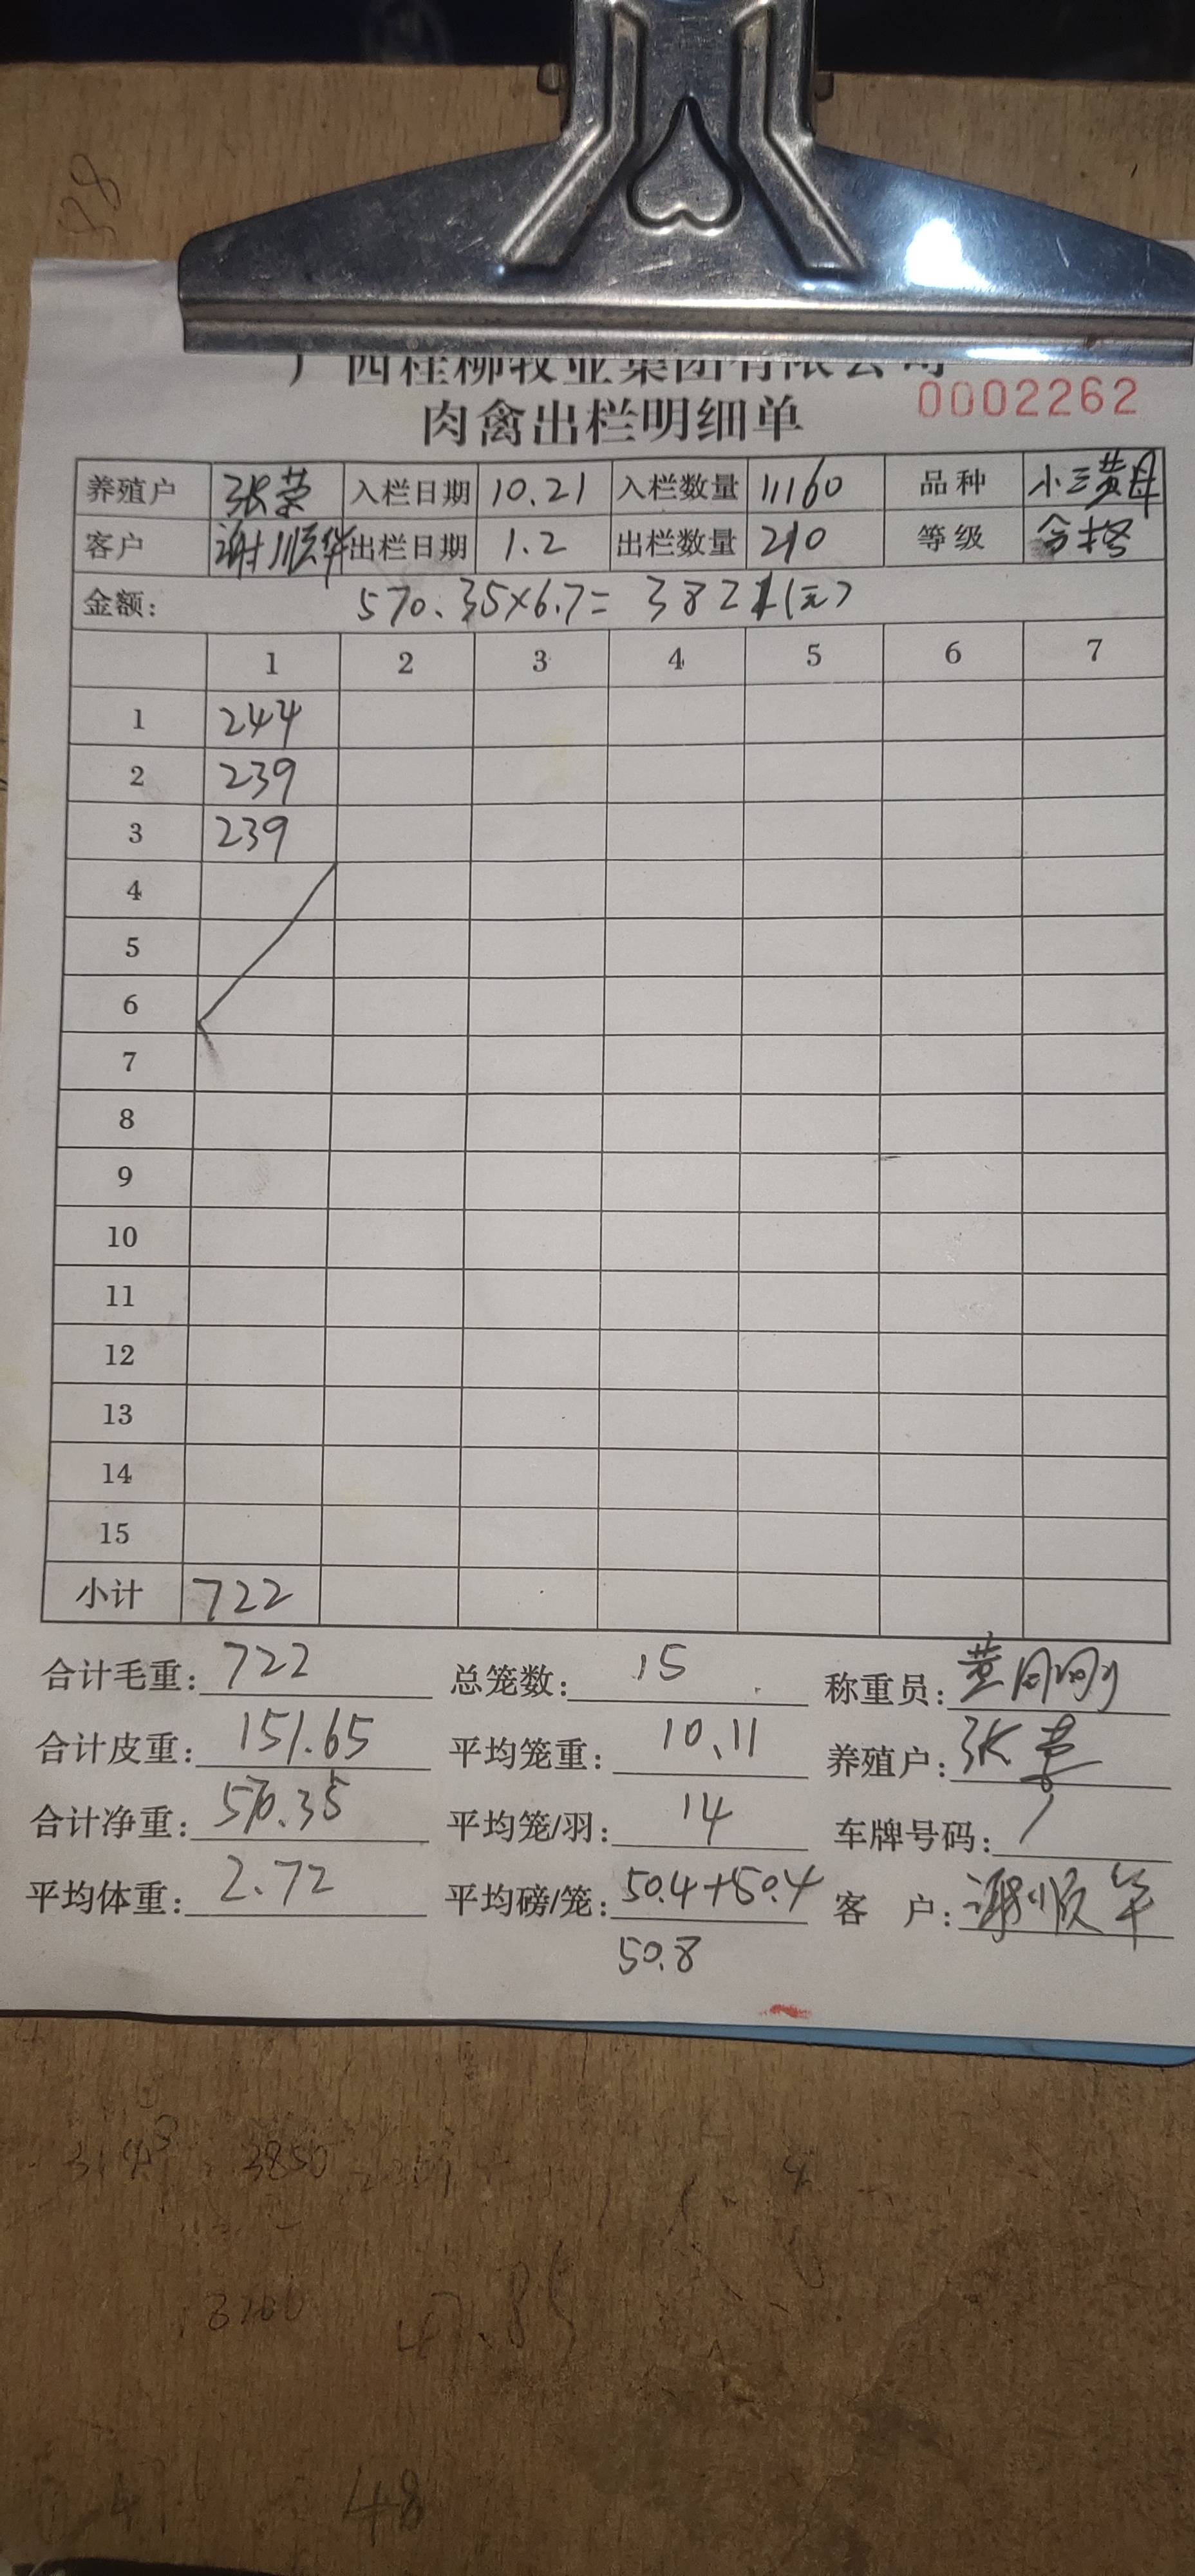 广西桂柳牧业集团有限公司
0002262
肉禽出栏明细单
养殖户 张荣 入栏日期 10.21 入栏数量 11160 品种 小三黄母
客户 谢顺华 出栏日期 1.2 出栏数量 210 等级 合格
金额: 570.35×6.7=3821(元)
1 2 3 4 5 6 7
1 244
2 239
3 239
4
5
6
7
8
9
10
11
12
13
14
15
小计 722
合计毛重: 722 总笼数: 15 称重员: 黄
合计皮重: 151.65 平均笼重: 10.11 养殖户: 张荣
合计净重: 570.35 平均笼/羽: 14 车牌号码: /
平均体重: 2.72 平均磅/笼: 50.4+50.4 客 户: 谢顺华
50.8
3850
48